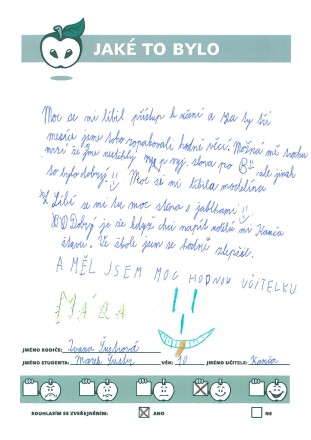 JAKÉ TO BYLO
Moc se mi líbil přístup k učení a za ty tři
měsíce jsme toho zopakovali hodně věcí. Možná mě trochu
mrzí že jme nestihly vyj. slova po B ale jinak
to bylo dobrý. Moc se mi líbila modelína
Líbí se mi tu moc stěna s jablkama
Dobrý je že když chci napít udělá mi Kamča
šťávu. Ve škole jsem se hodně zlepšil.
A MĚL JSEM MOC HODNOU UČITELKU
MÁRA
JMÉNO RODIČE: Ivana
JMÉNO STUDENTA: Marek VĚK: 10 JMÉNO UČITELE: Kamča
SOUHLASÍM SE ZVEŘEJNĚNÍM: ANO NE